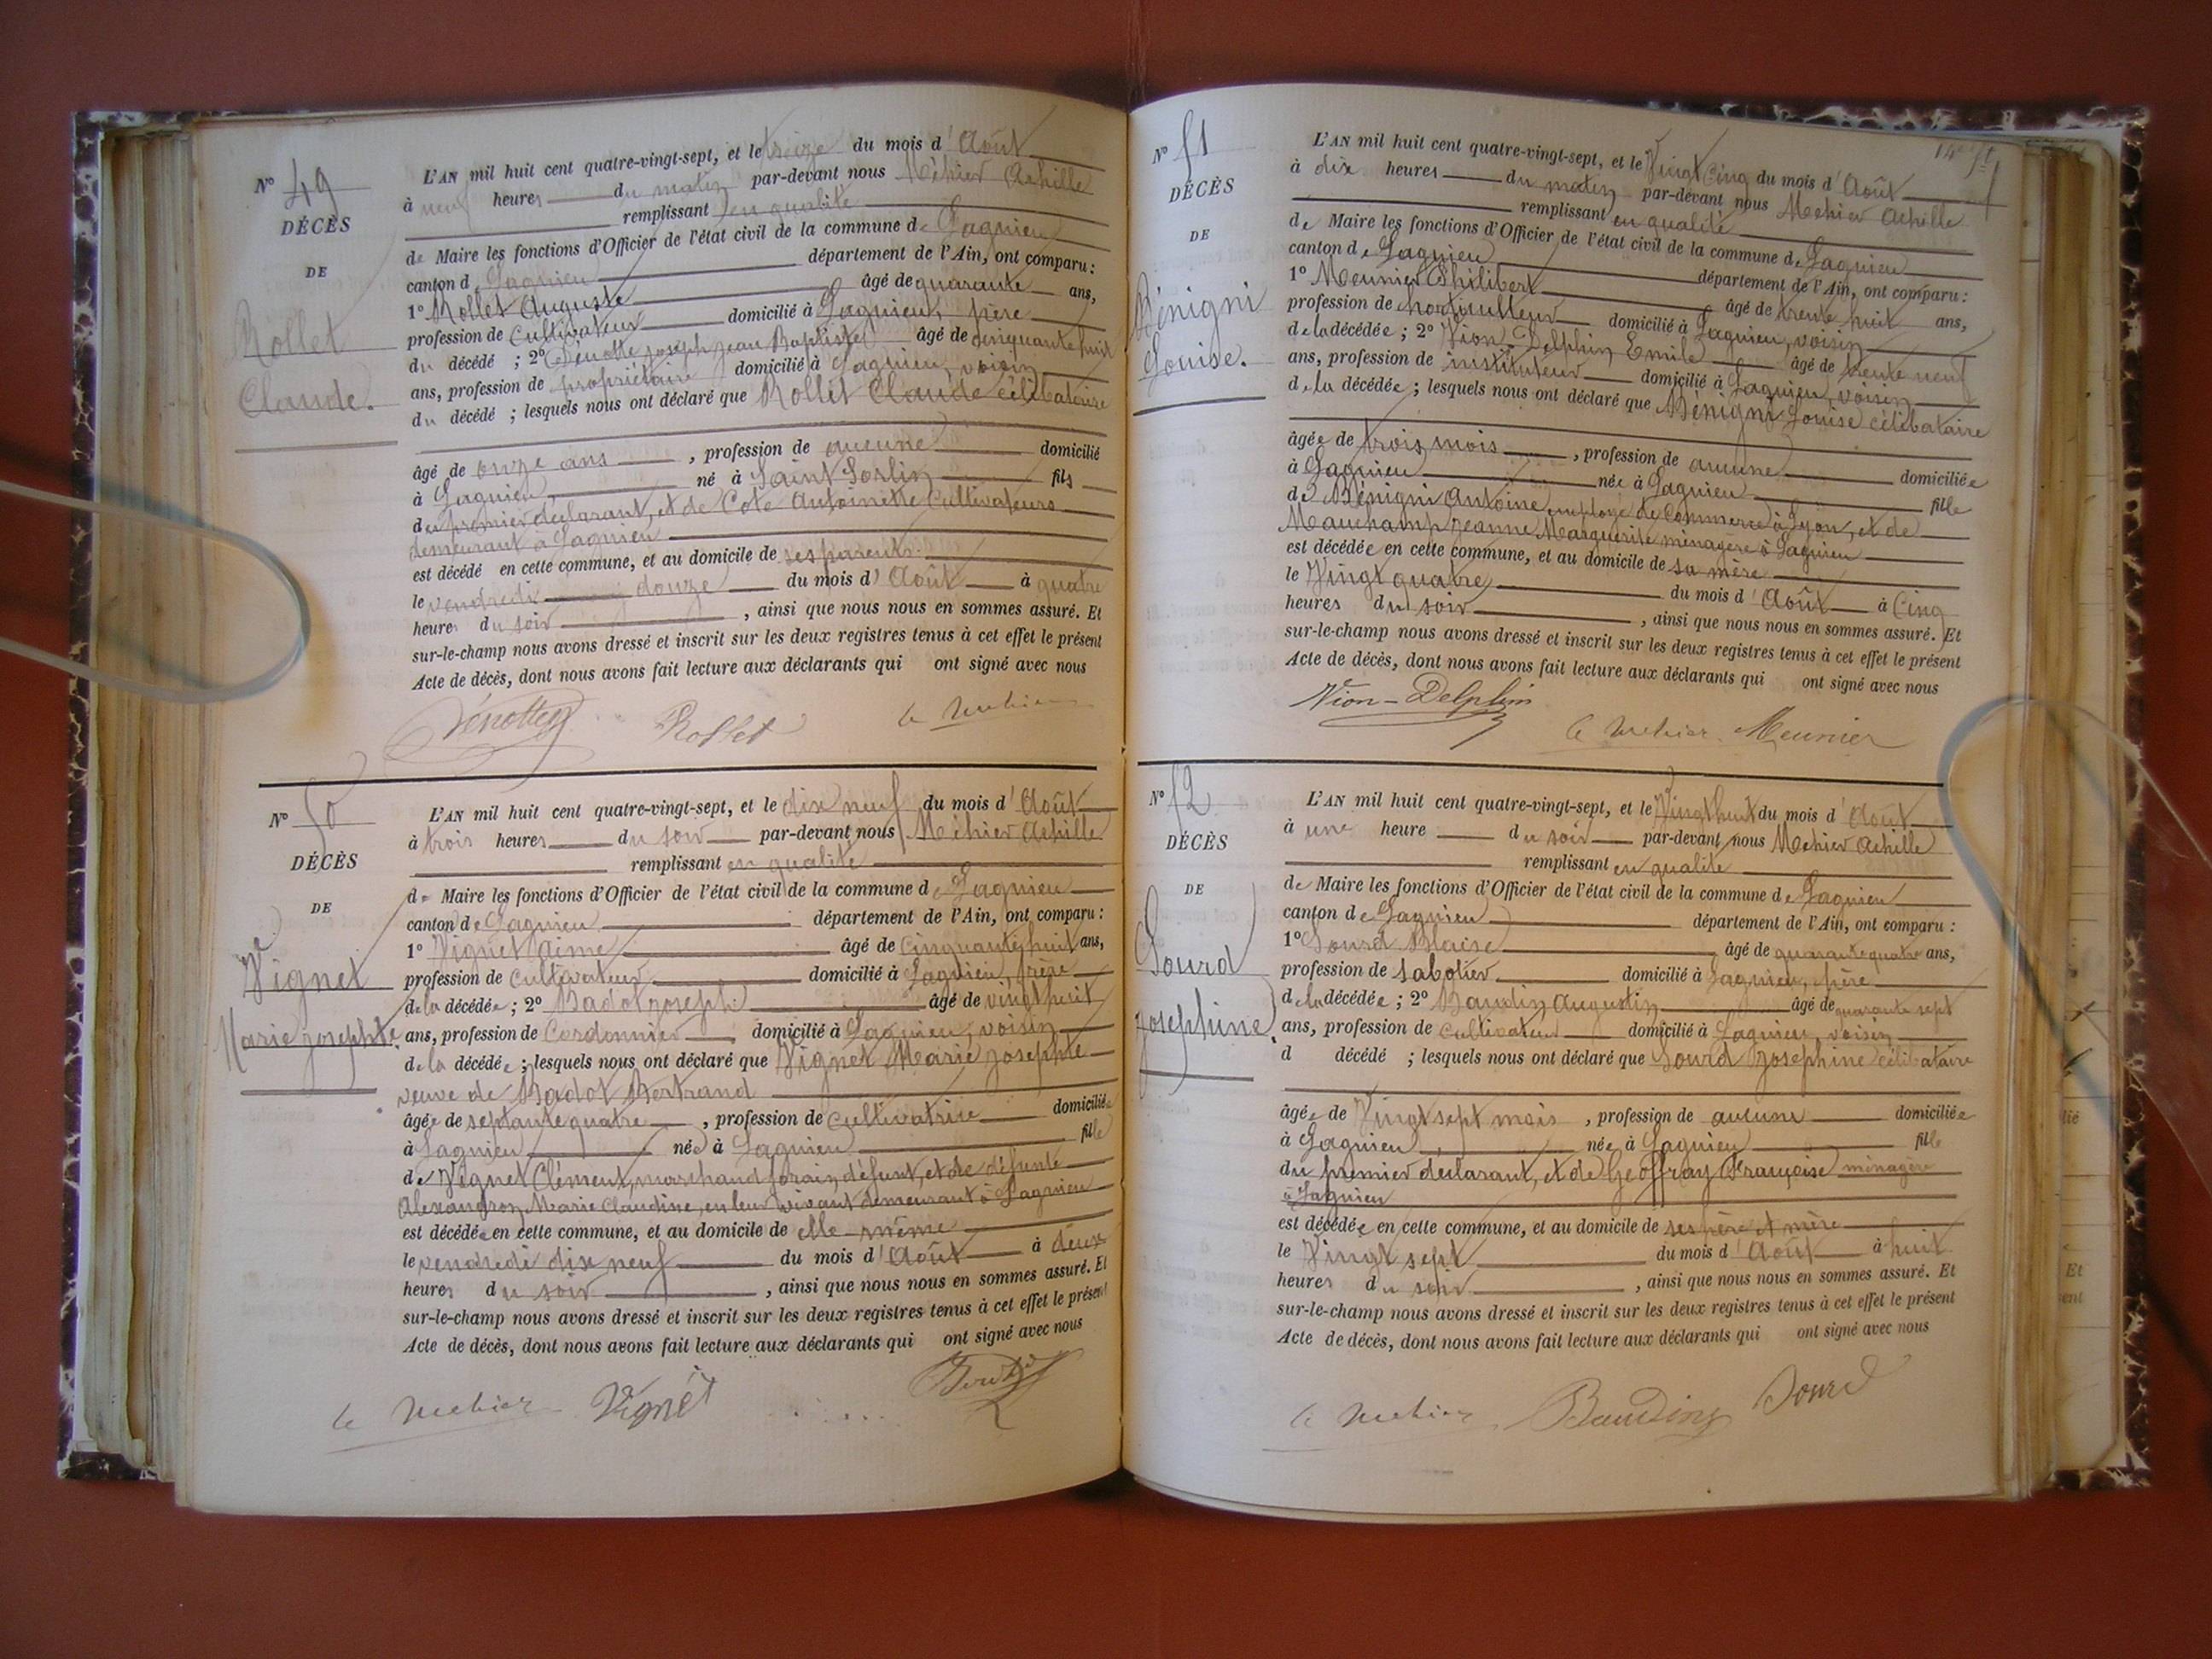 N° 49
DÉCÈS
DE
Rollet
Claude.
L'AN mil huit cent quatre-vingt-sept, et le treize du mois d'Août
à neuf heures du matin par-devant nous Méhier Achille
remplissant en qualité
de Maire les fonctions d'Officier de l'état civil de la commune de Lagnieu
canton de Lagnieu département de l'Ain, ont comparu :
1° Rollet Auguste âgé de quarante ans,
profession de Cultivateur domicilié à Lagnieu, père
du décédé ; 2° Joseph Jean Baptiste âgé de cinquante huit
ans, profession de propriétaire domicilié à Lagnieu, voisin
du décédé ; lesquels nous ont déclaré que Rollet Claude célibataire
âgé de onze ans , profession de aucune domicilié
à Lagnieu, né à Saint Sorlin fils
du premier déclarant, et de Cote Antoinette Cultivateurs
demeurant à Lagnieu
est décédé en cette commune, et au domicile de ses parents
le vendredi douze du mois d'Août à quatre
heures du soir , ainsi que nous nous en sommes assuré. Et
sur-le-champ nous avons dressé et inscrit sur les deux registres tenus à cet effet le présent
Acte de décès, dont nous avons fait lecture aux déclarants qui ont signé avec nous
Rollet A Mehier
N° 50
DÉCÈS
DE
Vignet
Marie Josephte.
L'AN mil huit cent quatre-vingt-sept, et le dix neuf du mois d'Août
à trois heures du soir par-devant nous Méhier Achille
remplissant en qualité
de Maire les fonctions d'Officier de l'état civil de la commune de Lagnieu
canton de Lagnieu département de l'Ain, ont comparu :
1° Vignet Aimé âgé de Cinquante huit ans,
profession de Cultivateur domicilié à Lagnieu, frère
de la décédée ; 2° Badot Joseph âgé de vingt huit
ans, profession de Cordonnier domicilié à Lagnieu, voisin
de la décédée ; lesquels nous ont déclaré que Vignet Marie Josephte
veuve de Badot Bertrand
âgée de septante quatre , profession de Cultivatrice domiciliée
à Lagnieu née à Lagnieu fille
de Vignet Clément, marchand forain, défunt, et de défunte
Marie Claudine, en leur vivant demeurant à Lagnieu
est décédée en cette commune, et au domicile de elle-même
le vendredi dix neuf du mois d'Août à deux
heures du soir , ainsi que nous nous en sommes assuré. Et
sur-le-champ nous avons dressé et inscrit sur les deux registres tenus à cet effet le présent
Acte de décès, dont nous avons fait lecture aux déclarants qui ont signé avec nous
A Mehier Vignet
N° 51
DÉCÈS
DE
Bénigni
Louise.
L'AN mil huit cent quatre-vingt-sept, et le Vingt Cinq du mois d'Août
à dix heures du matin par-devant nous Mehier Achille
remplissant en qualité
de Maire les fonctions d'Officier de l'état civil de la commune de Lagnieu
canton de Lagnieu département de l'Ain, ont comparu :
1° Meunier Philibert âgé de trente huit ans,
profession de horticulteur domicilié à Lagnieu, voisin
de la décédée ; 2° Vion-Delphin Emile âgé de trente neuf
ans, profession de instituteur domicilié à Lagnieu, voisin
de la décédée ; lesquels nous ont déclaré que Bénigni Louise célibataire
âgée de trois mois , profession de aucune domiciliée
à Lagnieu née à Lagnieu fille
de Bénigni Antoine employé de Commerce à Lyon, et de
Mauchamp Jeanne Marguerite ménagère à Lagnieu
est décédée en cette commune, et au domicile de sa mère
le Vingt quatre du mois d'Août à Cinq
heures du soir , ainsi que nous nous en sommes assuré. Et
sur-le-champ nous avons dressé et inscrit sur les deux registres tenus à cet effet le présent
Acte de décès, dont nous avons fait lecture aux déclarants qui ont signé avec nous
Vion-Delphin
A Mehier Meunier
N° 52
DÉCÈS
DE
Sourd
Josephine.
L'AN mil huit cent quatre-vingt-sept, et le Vingt huit du mois d'Août
à une heure du soir par-devant nous Mehier Achille
remplissant en qualité
de Maire les fonctions d'Officier de l'état civil de la commune de Lagnieu
canton de Lagnieu département de l'Ain, ont comparu :
1° Sourd Blaise âgé de quarante quatre ans,
profession de Sabotier domicilié à Lagnieu, père
de la décédée ; 2° Baudin Augustin âgé de quarante sept
ans, profession de Cultivateur domicilié à Lagnieu, voisin
d décédé ; lesquels nous ont déclaré que Sourd Josephine célibataire
âgée de Vingt sept mois , profession de aucune domiciliée
à Lagnieu née à Lagnieu fille
du premier déclarant, et de Geoffray Françoise ménagère
à Lagnieu
est décédée en cette commune, et au domicile de ses père et mère
le Vingt sept du mois d'Août à huit
heures du soir , ainsi que nous nous en sommes assuré. Et
sur-le-champ nous avons dressé et inscrit sur les deux registres tenus à cet effet le présent
Acte de décès, dont nous avons fait lecture aux déclarants qui ont signé avec nous
A Mehier Baudin Sourd